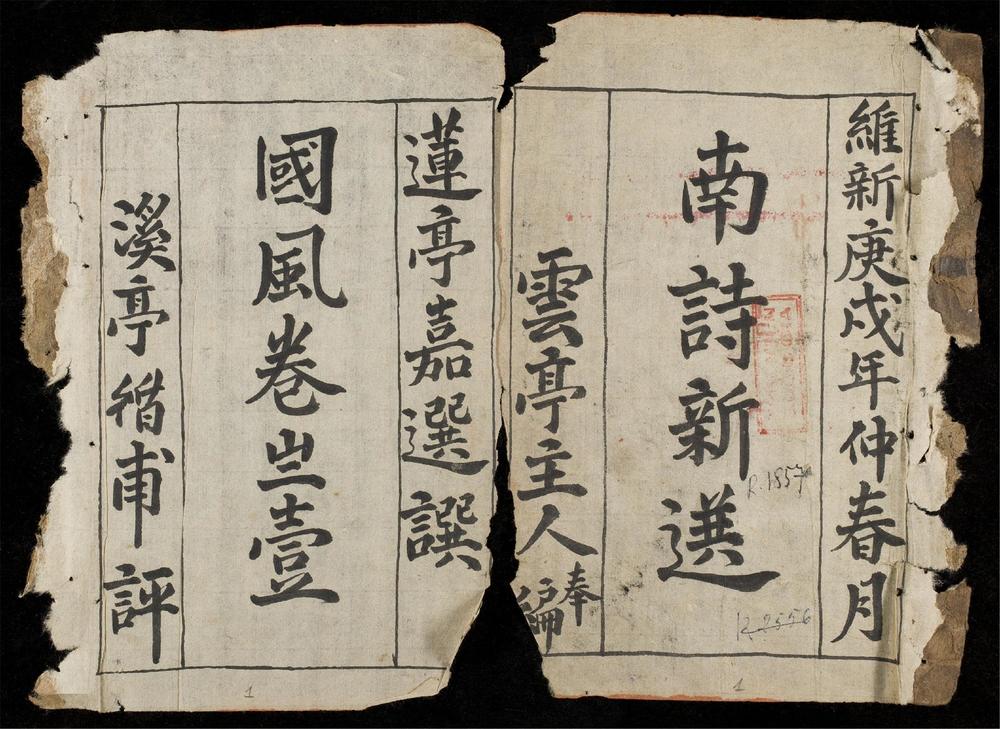 維新庚戌年仲春月
南詩新選
雲亭主人奉編
蓮亭嘉選譔
國風卷亗壹
溪亭
甫評
R.1857
R.2556
1
1